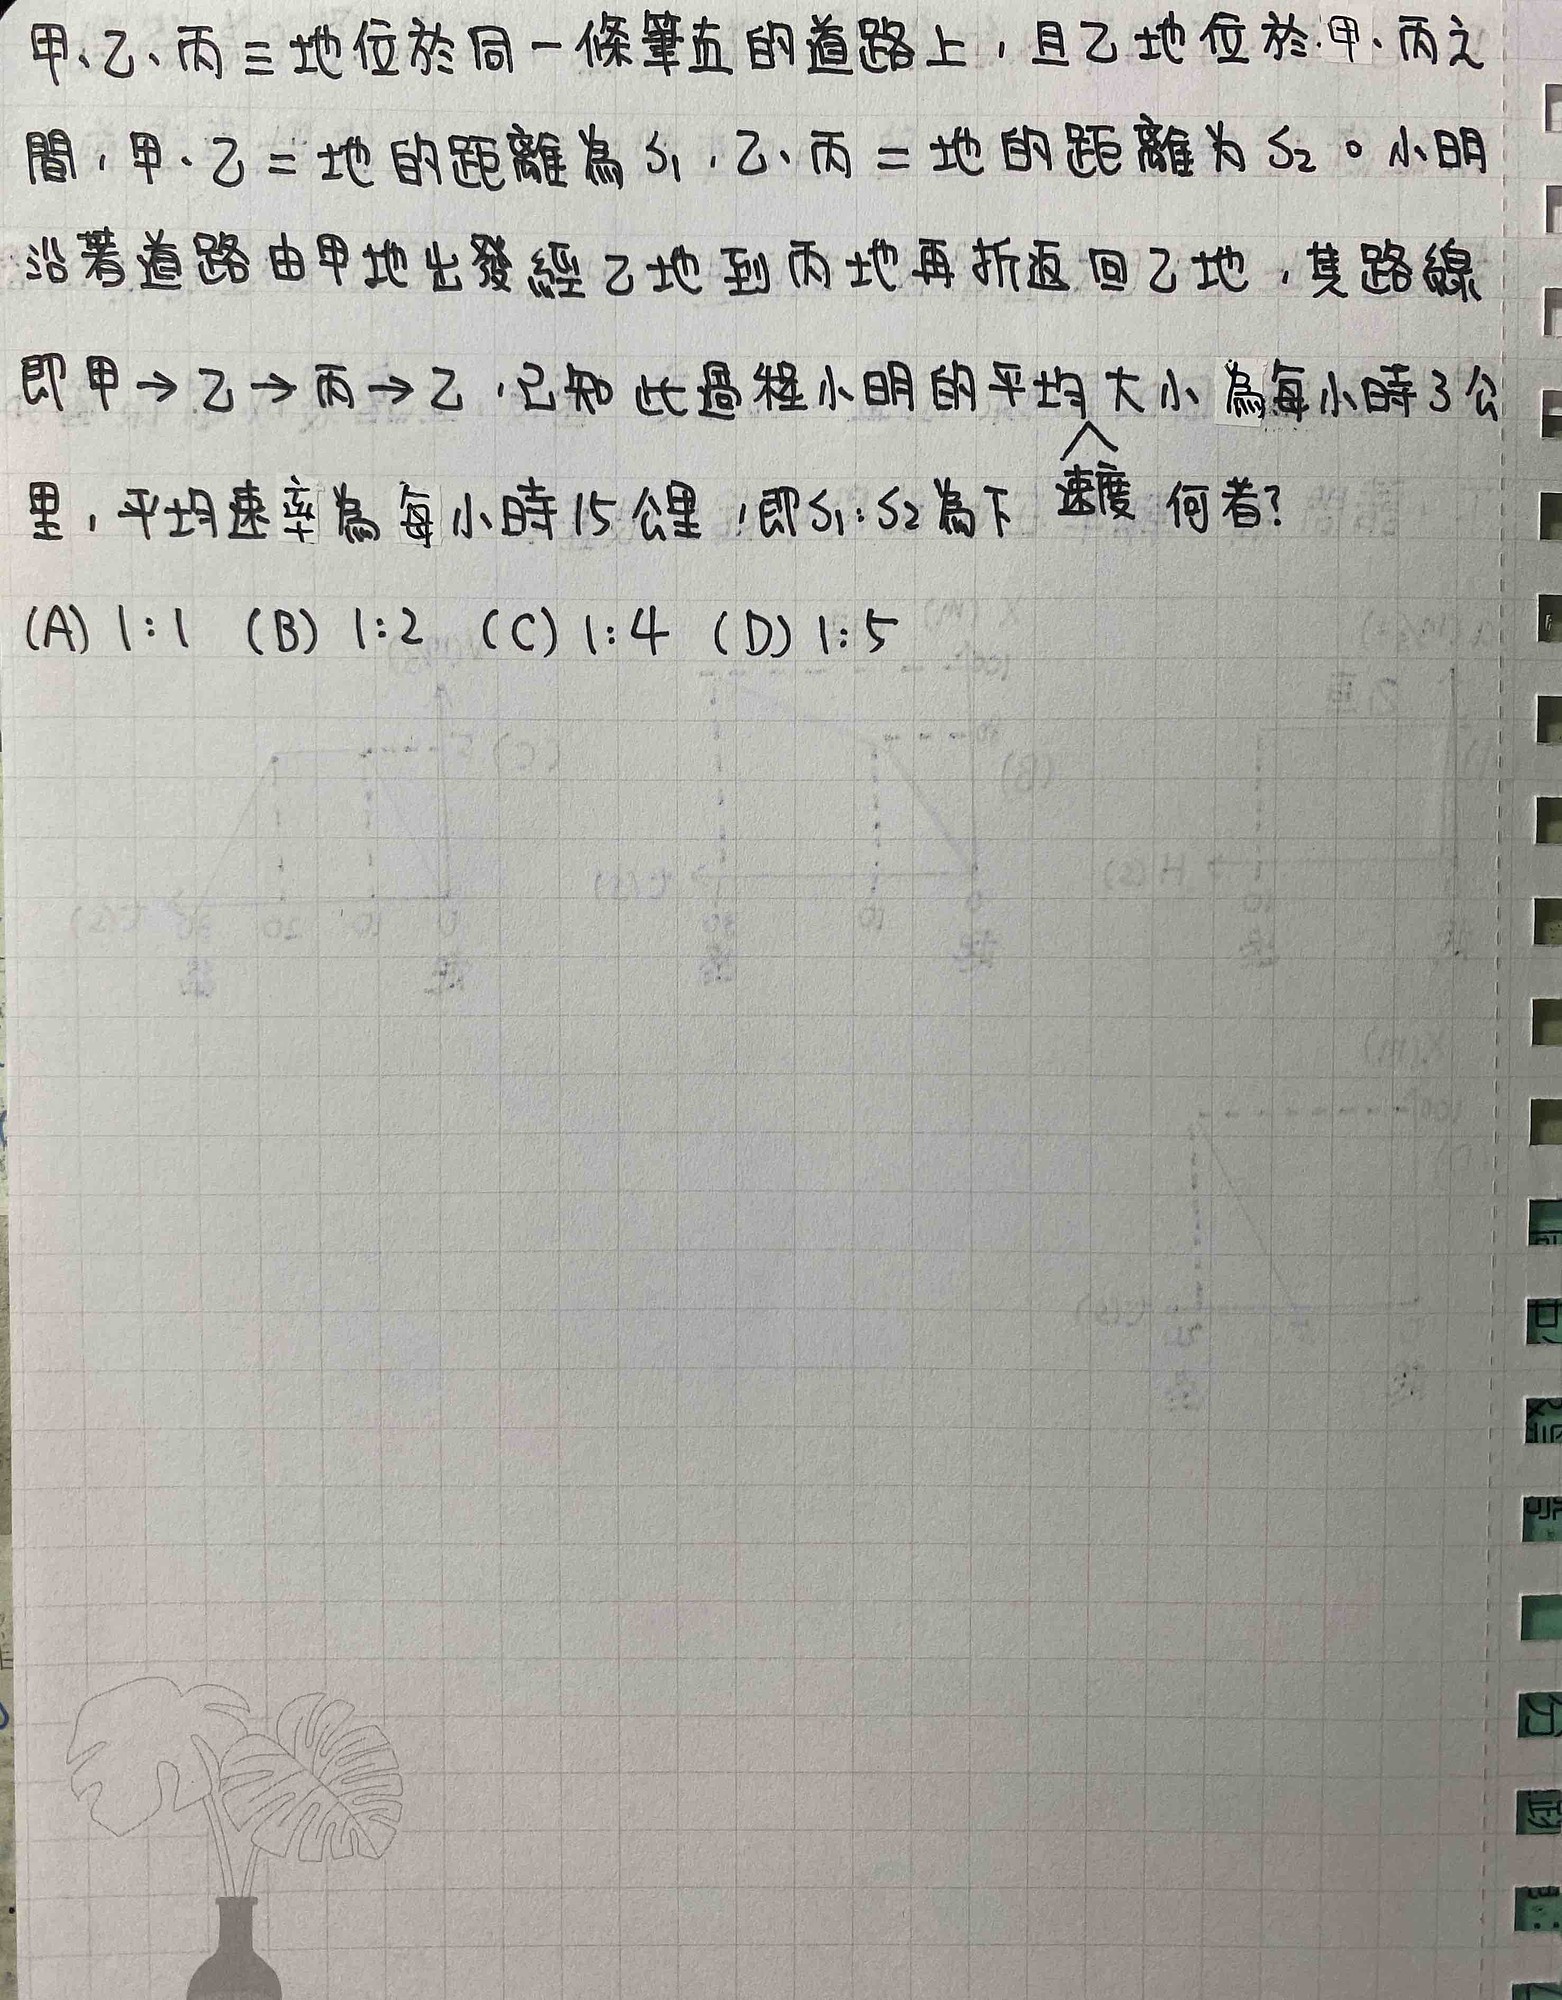 甲、乙、丙三地位於同一條筆直的道路上，且乙地位於甲、丙之
間，甲、乙二地的距離為S₁，乙、丙二地的距離为S₂。小明
沿著道路由甲地出發經乙地到丙地再折返回乙地，其路線
即甲→乙→丙→乙，已知此過程小明的平均大小為每小時3公
速度
里，平均速率為每小時15公里，即S₁:S₂為下何者?
(A) 1:1 (B) 1:2 (C) 1:4 (D) 1:5